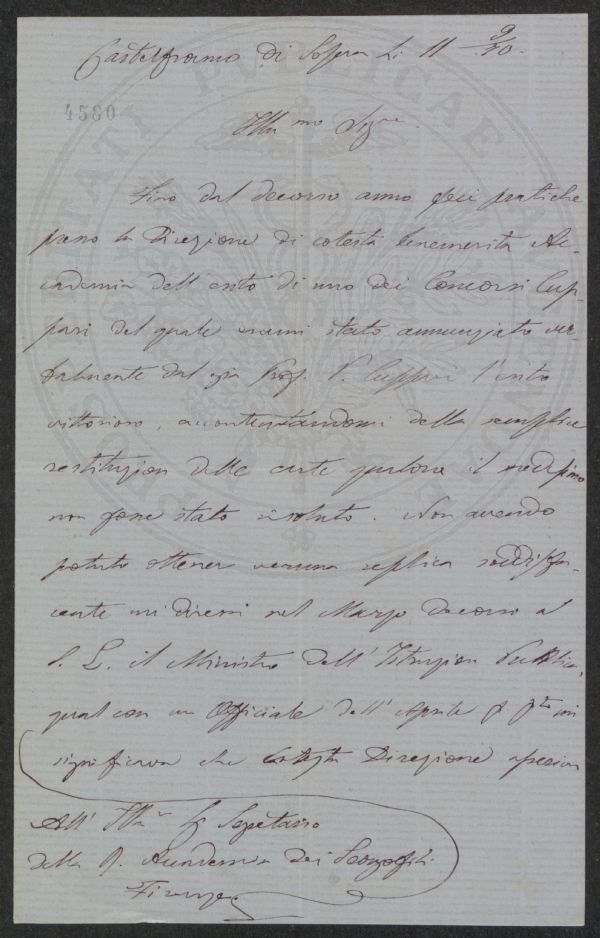 Castelfranco di Sopra li 11 9/70.
4580
Ill.mo Sigre.
Fino dal decorso anno feci pratiche
presso la Direzione di cotesta benemerita Ac-
cademia dell'esito di uno dei Concorsi Cup-
pari del quale erami stato annunziato ver-
balmente dal già Prof. P. Cuppari l'esito
vittorioso, accontentandomi della semplice
restituzion delle carte qualora il medesimo
non fosse stato risoluto. Non avendo
potuto ottener veruna replica soddisfa-
cente mi diressi nel Marzo decorso a
S. E. il Ministro dell'Istruzion Pubblica,
qual con un Officiale dell' Aprile mi
significava che Cotesta Direzione
All' Ill Sig Segretario
della R. Accademia dei Georgofili
Firenze